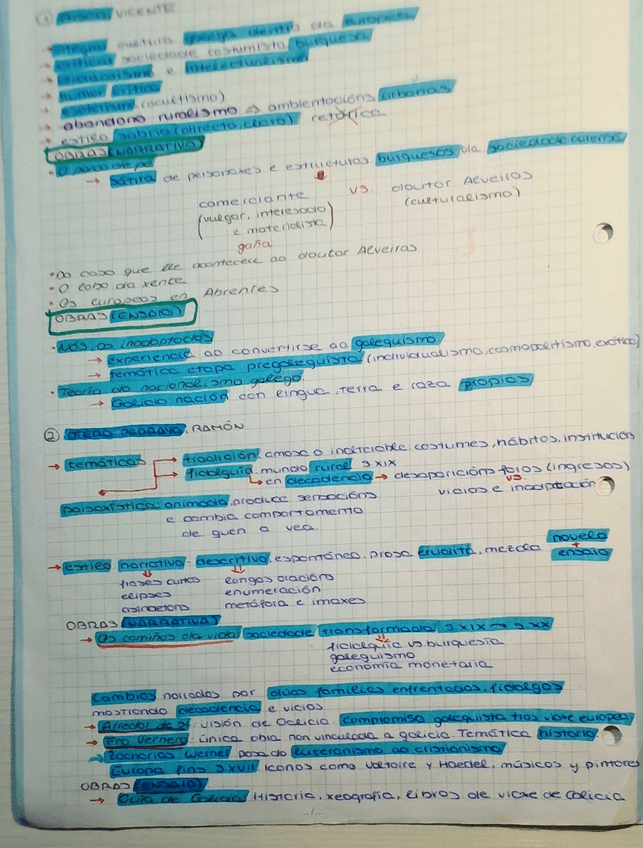 ① RISCO, VICENTE
→ integra cultura galega dentro da europea
→ críticas sociedade costumista burguesa
→ dinamismo e intelectualismo
→ humor crítico
→ exoterismo (ocultismo)
→ abandono ruralismo ⇒ ambientacións urbanas
→ estilo sobrio (directo, claro) retórica
OBRAS (NARRATIVA)
· O porco de pé
→ sátira de personaxes e estructuras burguesas da sociedade ourensá
comerciante vs doutor Alveiros
(vulgar, interesado e materialista) (culturalismo)
gaña
· Do caso que lle aconteceu ao doutor Alveiros
· O lobo da xente
· Os europeos en Abrentes
OBRAS (ENSAIO)
· Nós, os inadaptados
→ experiencia ao convertirse ao galeguismo
→ temática etapa pregaleguista (individualismo, cosmopolitismo, exótico)
· Teoría do nacionalismo galego
→ Galicia nación con lingua, terra e raza propias
② OTERO PEDRAYO, RAMÓN
→ temáticas → tradición: amosa o inalcicible, costumes, hábitos, institución
→ fidalguía: mundo rural s XIX
→ en decadencia → desaparición foros (ingresos)
vs vicios e inadaptación
paisaxística animada, produce sensacións
e cambia comportamento
de quen a vea.
→ estilo narrativo - descritivo, espontáneo, prosa erudita, mezcla novela + ensaio
frases curtas longas oracións
elipses enumeración
asindetons metáfora e imaxes
OBRAS (NARRATIVA)
→ Os camiños da vida: sociedade transformada s.XIX → s.XX
fidalguía vs burguesía
galeguismo
economía monetaria
Cambios narrados por dúas familias enfrentadas, fidalgos
mostrando decadencia e vicios
→ Arredor de si: visión de Galicia. Compromiso galeguista tras viaxe europeo
→ Fra Vernero: única obra non vinculada a galicia. Temática historia.
→ Zacharías Werner pasa do luteranismo ao cristianismo
Europa fins s.XVIII. Iconos como Voltaire y Haedel, músicos y pintores
OBRAS (ENSAIO)
→ Guía de Galicia: Historia, xeografía, libros de viaxe de Galicia
.../...